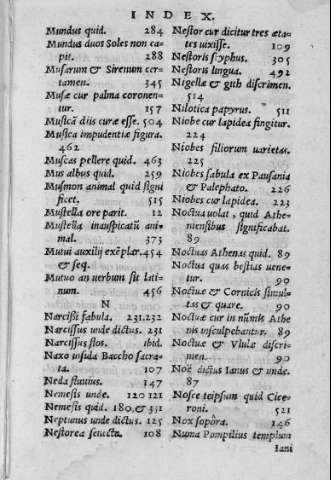 INDEX.
Mundus quid. 284
Mundus duos Soles non ca-
pit. 288
Musarum & Sirenum cer-
tamen. 345
Musæ cur palma coronen-
tur. 157
Musicā diis curæ esse. 504
Musica impudentiæ figura.
462
Muscas pellere quid. 463
Mus albus quid. 259
Musmon animal quid signi
ficet. 515
Mustella ore parit. 12
Mustella inauspicatū ani-
mal. 373
Mutui auxilij exēplar. 454
& seq.
Mutuo an uerbum sit lati-
num. 456
N
Narcissi fabula. 231.232
Narcissus unde dictus. 231
Narcissus flos. ibid.
Naxo insula Baccho sacra-
ta. 107
Neda fluuius. 147
Nemesis unde. 120 121
Nemesis quid. 180.& 331
Neptunus unde dictus. 125
Nestorea senecta. 108
Nestor cur dicitur tres æta-
tes uixisse. 109
Nestoris scyphus. 305
Nestoris lingua. 492
Nigellæ & gith discrimen.
514
Nilotica papyrus. 511
Niobe cur lapidea fingitur.
224
Niobes filiorum uarietas.
225
Niobes fabula ex Pausania
& Palephato. 226
Niobes cur lapidea. 223
Noctua uolat, quid Athe-
niensibus significabat.
89
Noctuas Athenas quid. 89
Noctua quas bestias uene-
tur. 90
Noctuæ & Cornicis simul-
tas & quare. 90
Noctuæ cur in nūmis Athe
nis insculpebantur. 89
Noctuæ & Vlulæ discri-
men. 90
Noë dictus Ianus & unde.
87
Nosce teipsum quid Cice-
roni. 521
Nox sopōra. 146
Numa Pompilius templum
Iani